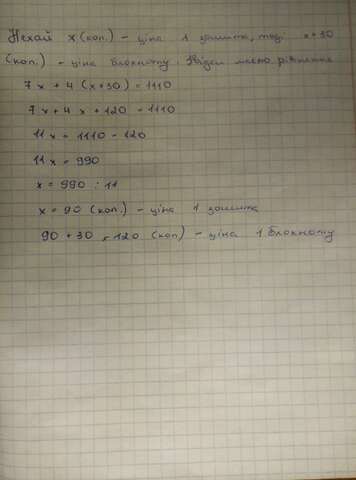 Нехай х (коп.) - ціна 1 зошита, тоді х+30
(коп.) - ціна блокноту. Звідси маємо рівняння
7х + 4 (х+30) = 1110
7х + 4х + 120 = 1110
11х = 1110 - 120
11х = 990
х = 990 : 11
х = 90 (коп.) - ціна 1 зошита
90 + 30 = 120 (коп) - ціна 1 блокноту